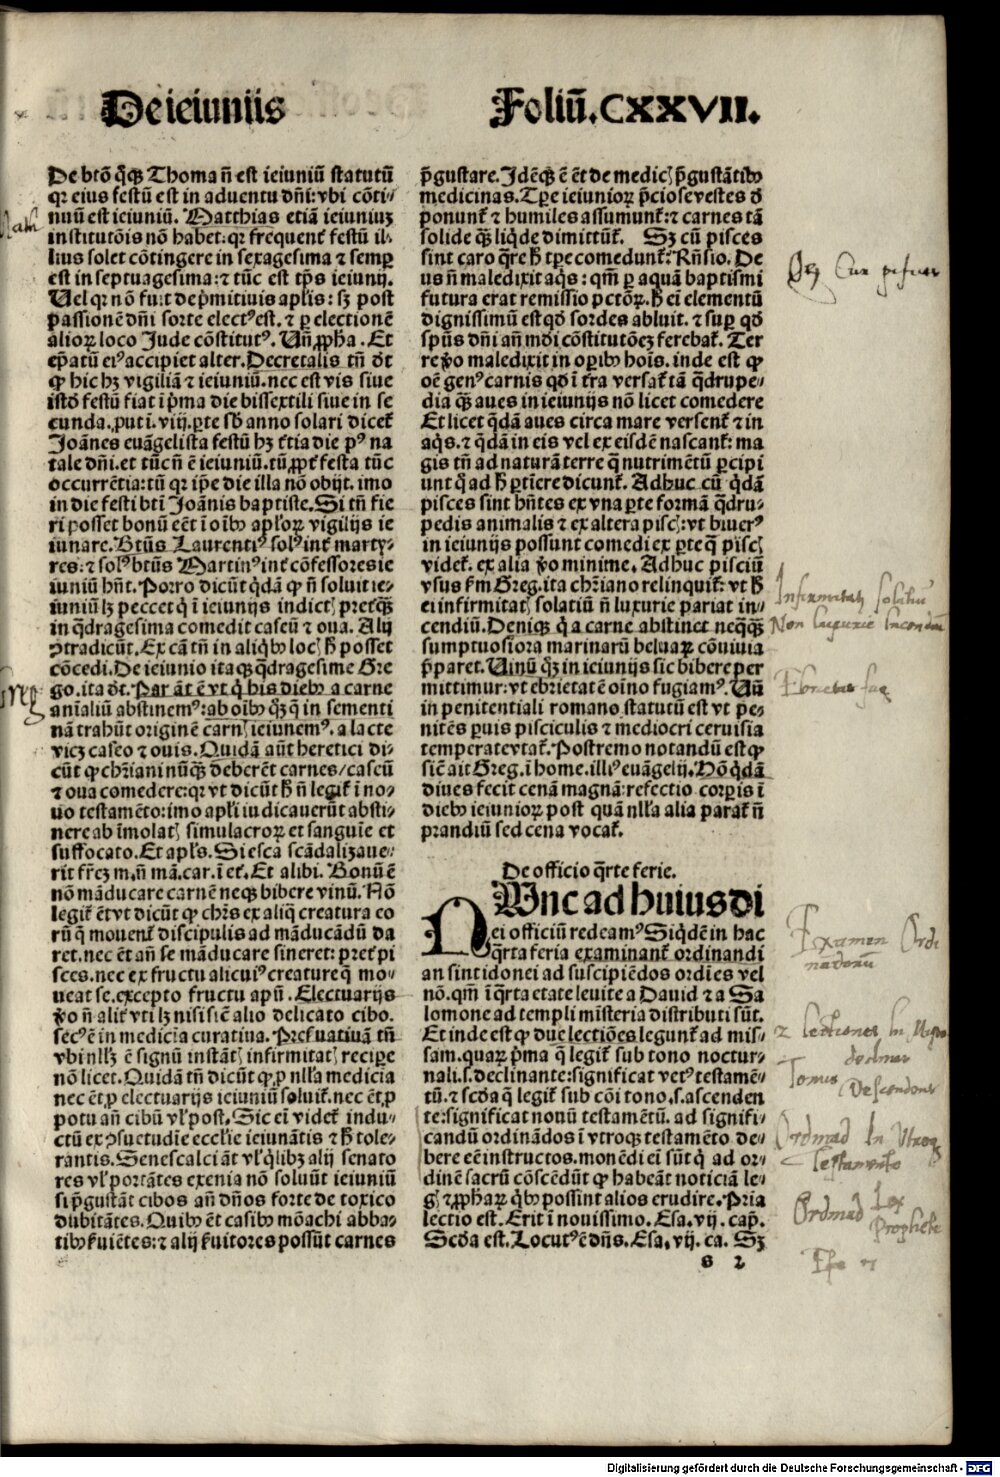 De ieiuniis
Foliū. CXXVII.
De btō q̄q̄ꝫ Thoma ñ est ieiuniū statutū
qꝛ eius festū est in aduentu dñi: vbi cōti⸗
nuū est ieiuniū. Matthias etiā ieiuniuꝫ
institutōis nō habet: qꝛ frequent̄ festū il⸗
lius solet cōtingere in sexagesima ⁊ semꝑ
est in septuagesima: ⁊ tūc est tp̄s ieiunij.
Uel qꝛ nō fuit de p̄mitiuis apl̄is: sꝫ post
passionē dñi sorte electꝰ est. ⁊ ꝑ electionē
alioꝝ loco Jude cōstitutꝰ. Uñ ꝓp̄ha. Et
ep̄atū eiꝰ accipiet alter. Decretalis tñ dt̄
ꝙ hic hꝫ vigiliā ⁊ ieiuniū. nec est vis siue
istd̄ festū fiat ī p̄ma die bissextili siue in se
cunda. put ī. viij. ꝑte sb̄ anno solari dicet̄
Joānes euāgelista festū hꝫ t̄tia die pꝰ na
tale dñi. et tūc ñ ē ieiuniū. tū ꝓpt̄ festa tūc
occurrētia: tū qꝛ ip̄e die illa nō obijt. imo
in die festi bt̄i Joānis baptiste. Si tñ fie
ri posset bonū eēt ī oībꝰ apl̄oꝝ vigilijs ie
iunare. Bt̄us Laurentiꝰ solꝰ int̄ marty⸗
res: ⁊ solꝰ bt̄us Martinꝰ int̄ cōfessores ie
iuniū hñt. Porro dicūt q̄dā ꝙ ñ soluit ie⸗
iuniū lꝫ peccet q̇ ī ieiunijs indictꝭ preꝼꝙ̄ꝫ
in q̄dragesima comedit caseū ⁊ oua. Alij
ꝯtradicūt. Ex cā tñ in aliqbꝰ locꝭ h̄ posset
cōcedi. De ieiunio itaqꝫ q̄dragesime Gre
go. ita dt̄. Par āt ē vt q̇ his diebꝰ a carne
anīaliū abstinemꝰ: ab oībꝰ q̄ꝫ q̄ in sementi
nā trahūt originē carnꝭ ieiunemꝰ. a lacte
vicꝫ caseo ⁊ ouis. Quidā aūt heretici di⸗
cūt ꝙ chr̄iani nūq̄ꝫ deberēt carnes/ caseū
⁊ oua comedere: qꝛ vt dicūt h̄ ñ legit̄ ī no⸗
uo testamēto: imo apl̄i iudicauerūt absti⸗
nere ab īmolatꝭ simulacroꝝ et sanguīe et
suffocato. Et apl̄s. Si esca scādalizaue⸗
rit fr̄eꝫ m̄. ñ mā. car. ī et̄. Et alibi. Bonū ē
nō māducare carnē neqꝫ bibere vinū. Nō
legit̄ ēt vt dicūt ꝙ chr̄s ex aliq̄ creatura eo
rū q̄ mouent̄ discipulis ad māducādū da
ret. nec ēt añ se māducare sineret: pret̄ pi
sces. nec ex fructu alicuiꝰ creature q̄ mo⸗
ueat se. excepto fructu apū. Electuarijs
ꝟo ñ alit̄ vti lꝫ nisi sic̄ alio delicato cibo.
secꝰ ē in medicīa curatiua. Prēuatiuā tñ
vbi nllꝫ ē signū instātꝭ infirmitatꝭ recipe
nō licet. Quidā tñ dicūt ꝙ ꝓ nlla medicīa
nec ēt, ꝓ electuarijs ieiuniū soluit̄. nec ēt, ꝓ
potu añ cibū vl̓ post. Sic ei videt̄ indu⸗
ctū ex ꝯsuetudīe eccl̄ie ieiunātis ⁊ h̄ tole⸗
rantis. Senescalci āt vl̓ q̇libꝫ alij senato
res vl̓ portātes exenia nō soluūt ieiuniū
si p̄gustāt cibos añ dños forte de toxico
dubitātes. Quibꝰ ēt casibꝰ mōachi abba⸗
tibꝰ ẜuiētes: ⁊ alij ẜuitores possūt carnes
p̄gustare. Idēqꝫ ē ēt de medicꝭ p̄gustātibꝰ
medicinas. Tꝑe ieiunioꝝ p̄ciose vestes d̄
ponunt̄ ⁊ humiles assumunt̄: ⁊ carnes tā
solide q̄ꝫ liq̇de dimittūt̄. Sꝫ cū pisces
sint caro q̄re h̄ tꝑe comedunt̄: Rñsio. De
us ñ maledixit aq̇s: qm̄ ꝑ aquā baptismi
futura erat remissio pctōꝝ. h̄ ei elementū
dignissimū est qd̄ sordes abluit. ⁊ suꝑ qd̄
spūs dñi añ mōi cōstitutōeꝫ ferebat̄. Ter
re ꝟo maledixit in oꝑibꝰ hoīs. inde est ꝙ
oē genꝰ carnis qd̄ ī t̄ra versat̄ tā q̄drupe⸗
dia q̄ꝫ aues in ieiunijs nō licet comedere
Et licet q̄dā aues circa mare versent̄ ⁊ in
aq̇s. ⁊ q̄dā in eis vel ex eisdē nascant̄: ma
gis tñ ad naturā terre q̄ nutrimētū ꝑcipi
unt q̄ ad h̄ ꝑtiere dicunt̄. Adhuc cū q̄dā
pisces sint hñtes ex vna ꝑte formā q̄dru⸗
pedis animalis ⁊ ex altera piscꝭ: vt biuerꝰ
in ieiunijs possunt comedi ex ꝑte q̄ piscꝭ
videt̄. ex alia ꝟo minime. Adhuc pisciū
vsus ẜm Greg. ita chr̄iano relinquit̄: vt h̄
ei infirmitatꝭ solatiū ñ luxurie pariat in⸗
cendiū. Deniqꝫ q̇ a carne abstinet neq̄q̄ꝫ
sumptuosiora marinarū beluaꝝ cōuiuia
p̄paret. Uinū q̄ꝫ in ieiunijs sic bibere per
mittimur: vt ebrietatē oīno fugiamꝰ. Uñ
in penitentiali romano statutū est vt pe⸗
nitēs ꝑuis pisciculis ⁊ mediocri ceruisia
temperate vtat̄. Postremo notandū est ꝙ
sic̄ ait Greg. ī home. illiꝰ euāgelij. Hō q̄dā
diues fecit cenā magnā: refectio corꝑis ī
diebꝰ ieiunioꝝ post quā nlla alia parat̄ ñ
prandiū sed cena vocat̄.
De officio q̄rte ferie.
NUnc ad huius di
ei officiū redeamꝰ Siq̇dē in hac
q̄rta feria examinant̄ ordinandi
an sint idonei ad suscipiēdos ordīes vel
nō. qm̄ ī q̄rta etate leuite a Dauid ⁊ a Sa
lomone ad templi misteria distributi sūt.
Et inde est ꝙ due lectiōes legunt̄ ad mis⸗
sam. quaꝝ p̄ma q̄ legit̄ sub tono noctur⸗
nali. s. declinante: significat vetꝰ testamē⸗
tū. ⁊ scd̄a q̄ legit̄ sub cōi tono. s. ascenden
te: significat nouū testamētū. ad signifi⸗
candū ordinādos ī vtroqꝫ testamēto de⸗
bere eē instructos. monēdi ei sūt q̇ ad or⸗
dinē sacrū cōscēdūt ꝙ habeāt noticiā le⸗
gꝭ ⁊ ꝓpharꝝ q̇bꝰ possint alios erudire. Pria
lectio est. Erit ī nouissimo. Esa. vij. cap̄.
Scd̄a est. Locutꝰ ē dñs. Esa. vij. ca. Sꝫ
s 2
Greg
Cur
Infirmitatꝭ solatiū
Non luxurie Incendiū
Examen Ordi
nandorū
2 lectiones In Missa
declinar
Tonus Descendens
Ordinād In Vtroqꝫ
Testamento
Ordinād Lex
Prophete
Digitalisierung gefördert durch die Deutsche Forschungsgemeinschaft - DFG